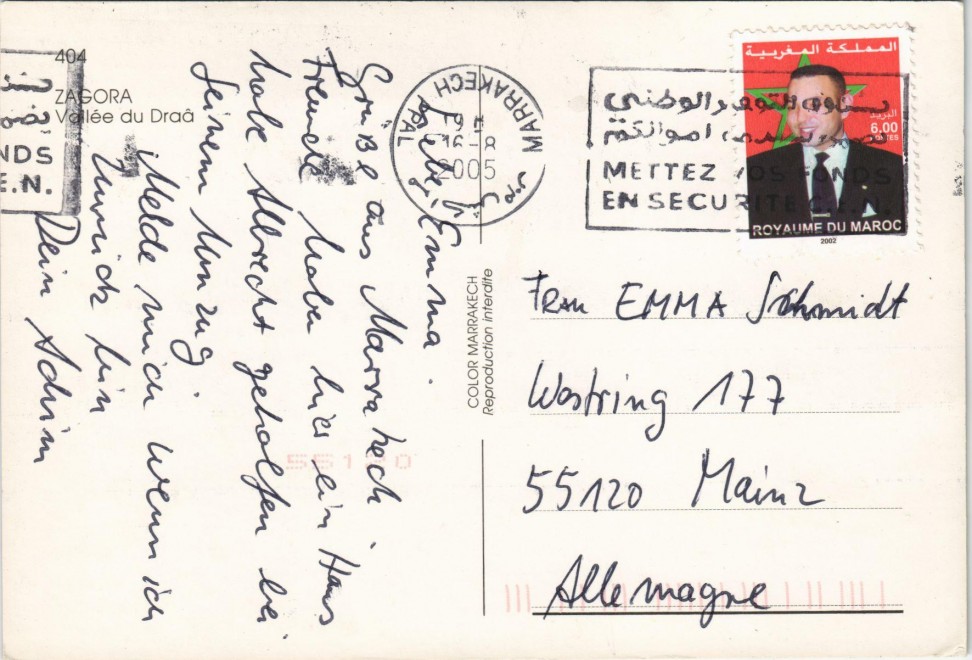 404
ZAGORA
Vallée du Draâ
Liebe Emma.
Grüße aus Marrakech.
Freunde haben hier ein Haus
habe Albrecht geholfen bei
seinem Umzug.
Melde mich wenn ich
zurück bin
Dein Achim
COLOR MARRAKECH
Reproduction interdite
MARRAKECH
PAL
2005
METTEZ VOS FONDS
EN SECURITE C.E.N.
NDS
E.N.
المملكة المغربية
البريد
6.00
POSTES
ROYAUME DU MAROC
2002
Frau EMMA Schmidt
Westring 177
55120 Mainz
Allemagne
55120